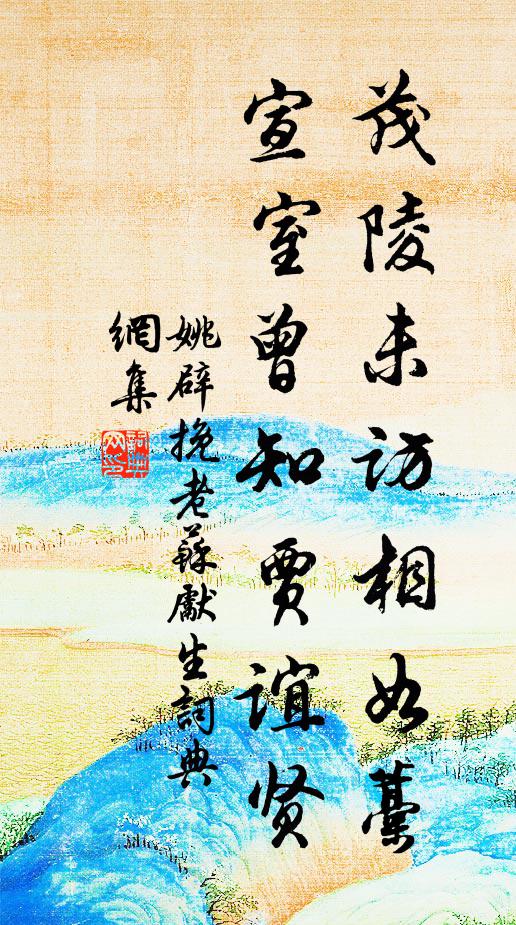 茂陵未访相如藁
宣室曾知贾谊贤
姚辟挽老苏献生詞典
網集